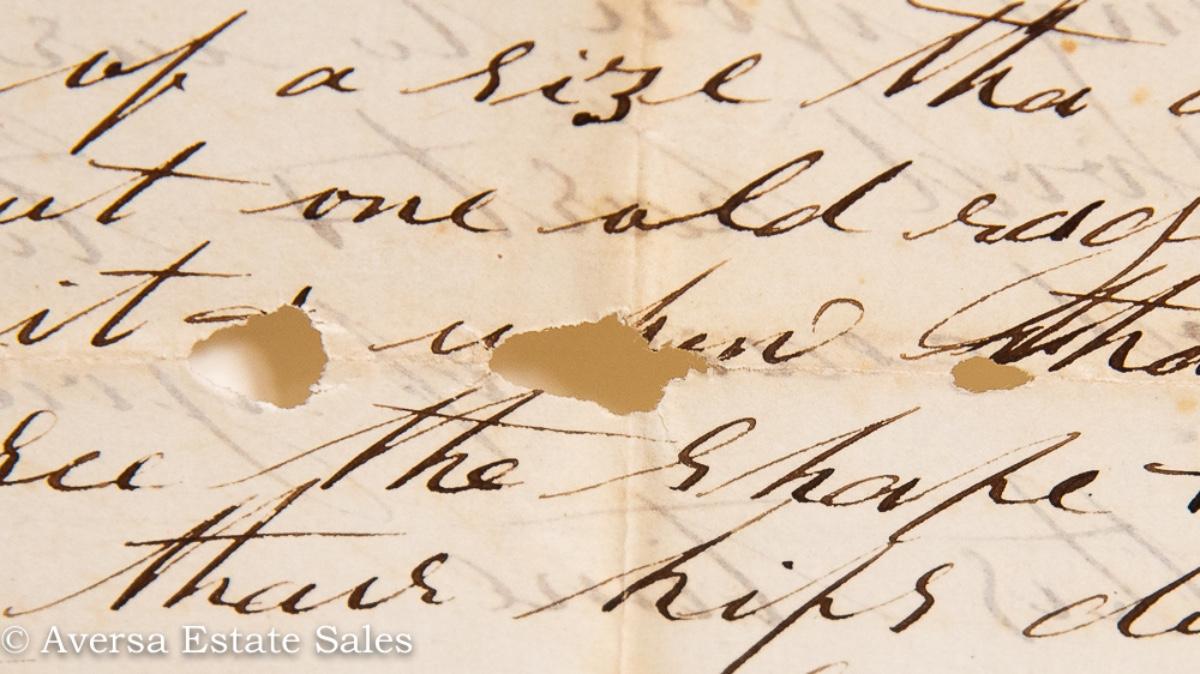 of a size tha
ut one old rag
it a when tha
see the shape
thare hips
© Aversa Estate Sales